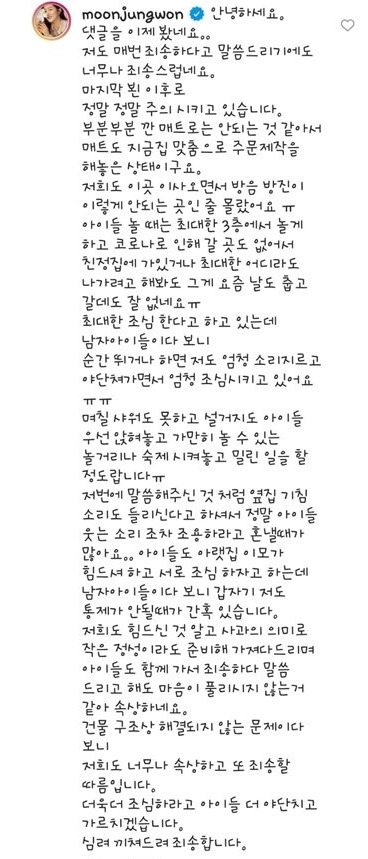 moonjungwon 안녕하세요.
댓글을 이제 봤네요..
저도 매번 죄송하다고 말씀드리기에도
너무나 죄송스럽네요.
마지막 뵌 이후로
정말 정말 주의 시키고 있습니다.
부분부분 깐 매트로는 안되는 것 같아서
매트도 지금집 맞춤으로 주문제작을
해놓은 상태이구요.
저희도 이곳 이사오면서 방음 방진이
이렇게 안되는 곳인 줄 몰랐어요 ㅠ
아이들 놀 때는 최대한 3층에서 놀게
하고 코로나로 인해 갈 곳도 없어서
친정집에 가있거나 최대한 어디라도
나가려고 해봐도 그게 요즘 날도 춥고
갈데도 잘 없네요ㅠ
최대한 조심 한다고 하고 있는데
남자아이들이다 보니
순간 뛰거나 하면 저도 엄청 소리지르고
야단쳐가면서 엄청 조심시키고 있어요
ㅠㅠ
며칠 샤워도 못하고 설거지도 아이들
우선 앉혀놓고 가만히 놀 수 있는
놀거리나 숙제 시켜놓고 밀린 일을 할
정도랍니다ㅠ
저번에 말씀해주신 것 처럼 옆집 기침
소리도 들리신다고 하셔서 정말 아이들
웃는 소리 조차 조용하라고 혼낼때가
많아요.. 아이들도 아랫집 이모가
힘드셔 하고 서로 조심 하자고 하는데
남자아이들이다 보니 갑자기 저도
통제가 안될때가 간혹 있습니다.
저희도 힘드신 것 알고 사과의 의미로
작은 정성이라도 준비해 가져다드리며
아이들도 함께 가서 죄송하다 말씀
드리고 해도 마음이 풀리시지 않는거
같아 속상하네요.
건물 구조상 해결되지 않는 문제이다
보니
저희도 너무나 속상하고 또 죄송할
따름입니다.
더욱더 조심하라고 아이들 더 야단치고
가르치겠습니다.
심려 끼쳐드려 죄송합니다.